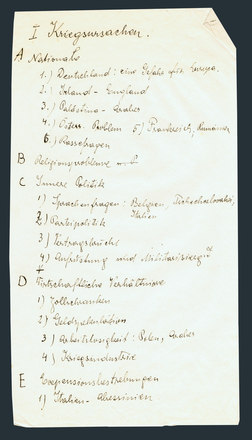 I Kriegsursachen.
A Nationale
1.) Deutschland: eine Gefahr für Europa.
2.) Irland - England
3.) Palästina - Araber
4.) Österr. Problem 5) Frankreich,
6.) Rassefragen
B Religionsprobleme
C Innere Politik
1) Sprachenfragen: Belgien, Tschechoslovakei,
Italien
2) Parteipolitik
3) Vertragsbrüche
4) Aufrüstung und
D Wirtschaftliche Verhältnisse
1) Zollschranken
2)
3) Arbeitslosigkeit: Polen,
4) Kriegsindustrie
E Expansionsbestrebungen
1) Italien - Abessinien